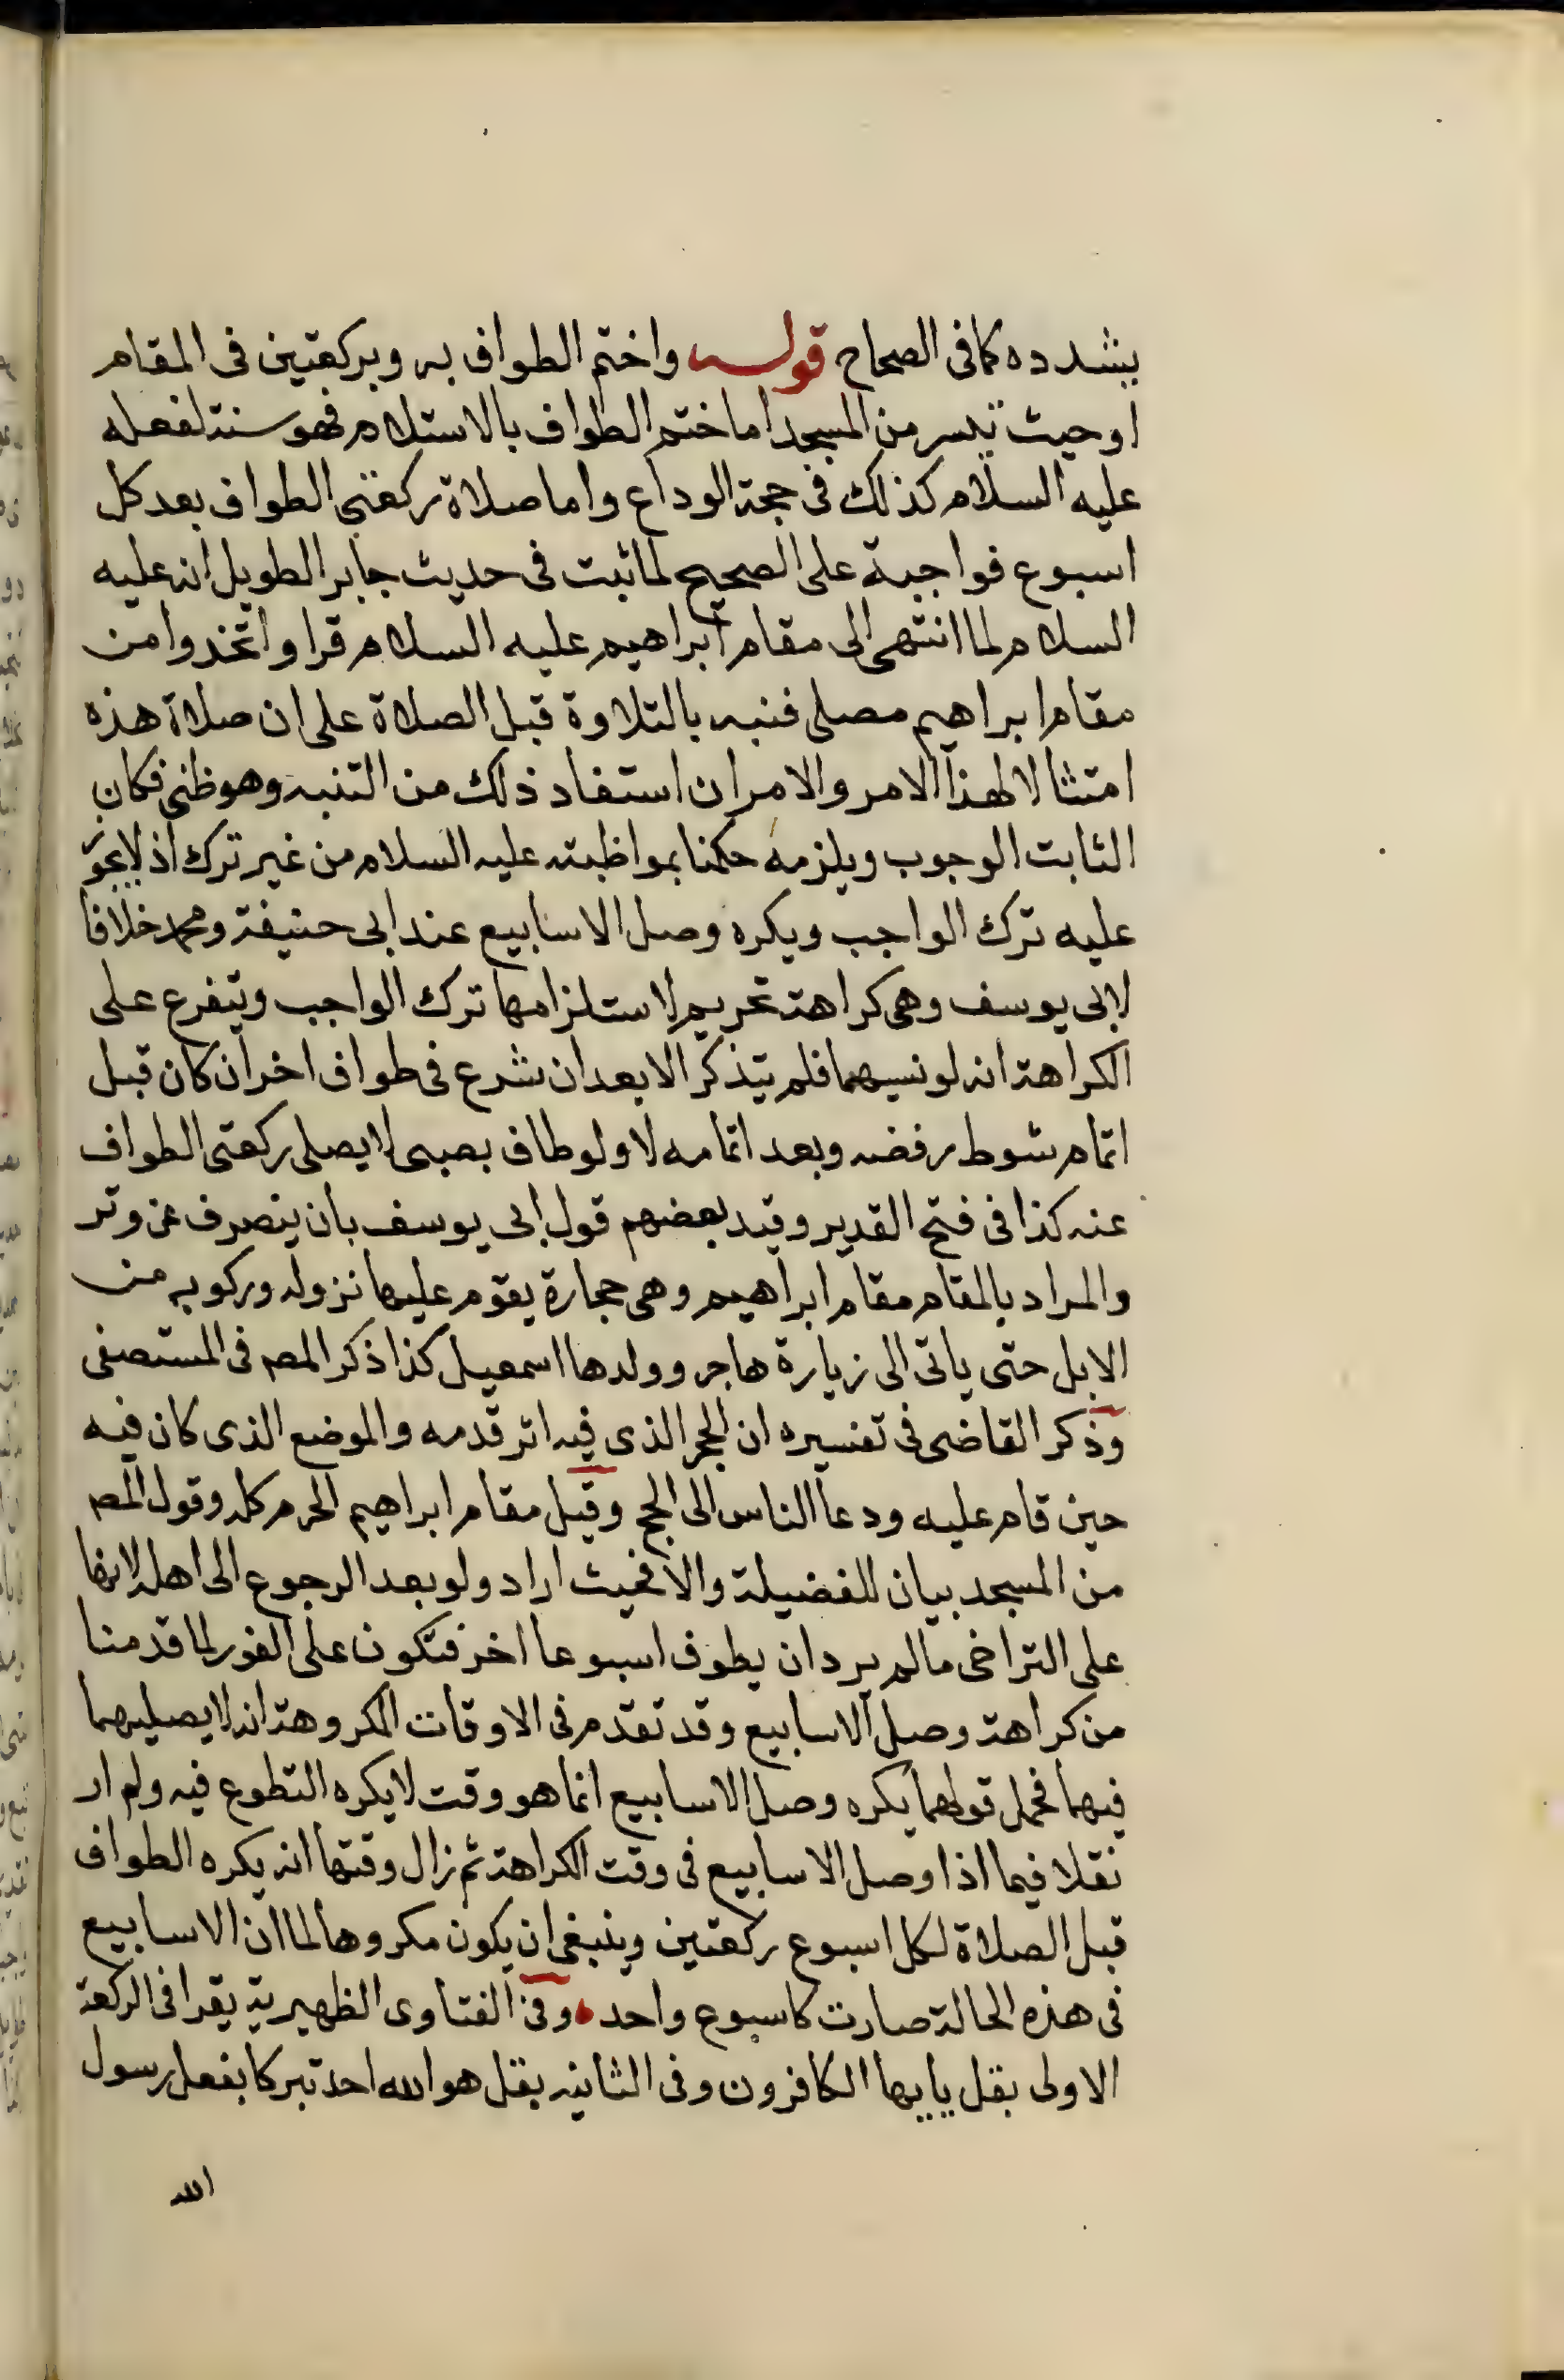 بشدده كما فى الصحاح قوله واختم الطواف به وبركعتين فى المقام
او حيث تيسر من المسجد اما ختم الطواف بالاستلام فهو سنة لفعله
عليه السلام كذلك فى حجة الوداع واما صلاة ركعتى الطواف بعد كل
اسبوع فواجبة على الصحيح لما ثبت فى حديث جابر الطويل انه عليه
السلام لما انتهى الى مقام ابراهيم عليه السلام قرا واتخذوا من
مقام ابراهيم مصلى فنبه بالتلاوة قبل الصلاة على ان صلاة هذه
امتثالا لهذا الامر والامر ان استفاد ذلك من التنبه وهو ظنى فكان
الثابت الوجوب ويلزمه حكمنا بمواظبته عليه السلام من غير ترك اذ لا يجوز
عليه ترك الواجب ويكره وصل الاسابيع عند ابى حنيفة ومحمد خلافا
لابى يوسف وهى كراهة تحريم لاستلزامها ترك الواجب ويتفرع على
الكراهة انه لو نسيهما فلم يتذكر الا بعد ان شرع فى طواف اخر ان كان قبل
اتمام شوط رفضه وبعد اتمامه لا ولو طاف بصبى لا يصلى ركعتى الطواف
عنه كذا فى فتح القدير وقيد بعضهم قول ابى يوسف بان ينصرف عن وتر
والمراد بالمقام مقام ابراهيم وهى حجارة يقوم عليها نزوله وركوبه من
الابل حتى ياتى الى زيارة هاجر وولدها اسمعيل كذا ذكر المصـ فى المستصفى
وذكر القاضى فى تفسيره ان الحجر الذى فيه اثر قدمه والموضع الذى كان فيه
حين قام عليه ودعا الناس الى الحج وقيل مقام ابراهيم الحرم كله وقول المصـ
من المسجد بيان للفضيلة والا فحيث اراد ولو بعد الرجوع الى اهله لانها
على التراخى مالم يرد ان يطوف اسبوعا اخر فتكون على الفور لما قدمنا
من كراهة وصل الاسابيع وقد تقدم فى الاوقات المكروهة انه لا يصليهما
فيها فحمل قولهما يكره وصل الاسابيع انما هو وقت لا يكره التطوع فيه ولم ار
نقلا فيما اذا وصل الاسابيع فى وقت الكراهة ثم زال وقتها انه يكره الطواف
قبل الصلاة لكل اسبوع ركعتين وينبغى ان يكون مكروها لما ان الاسابيع
فى هذه الحالة صارت كاسبوع واحد وفى الفتاوى الظهيرية يقرا فى الركعة
الاولى بقل يايها الكافرون وفى الثانية بقل هو الله احد تبركا بفعل رسول
الله